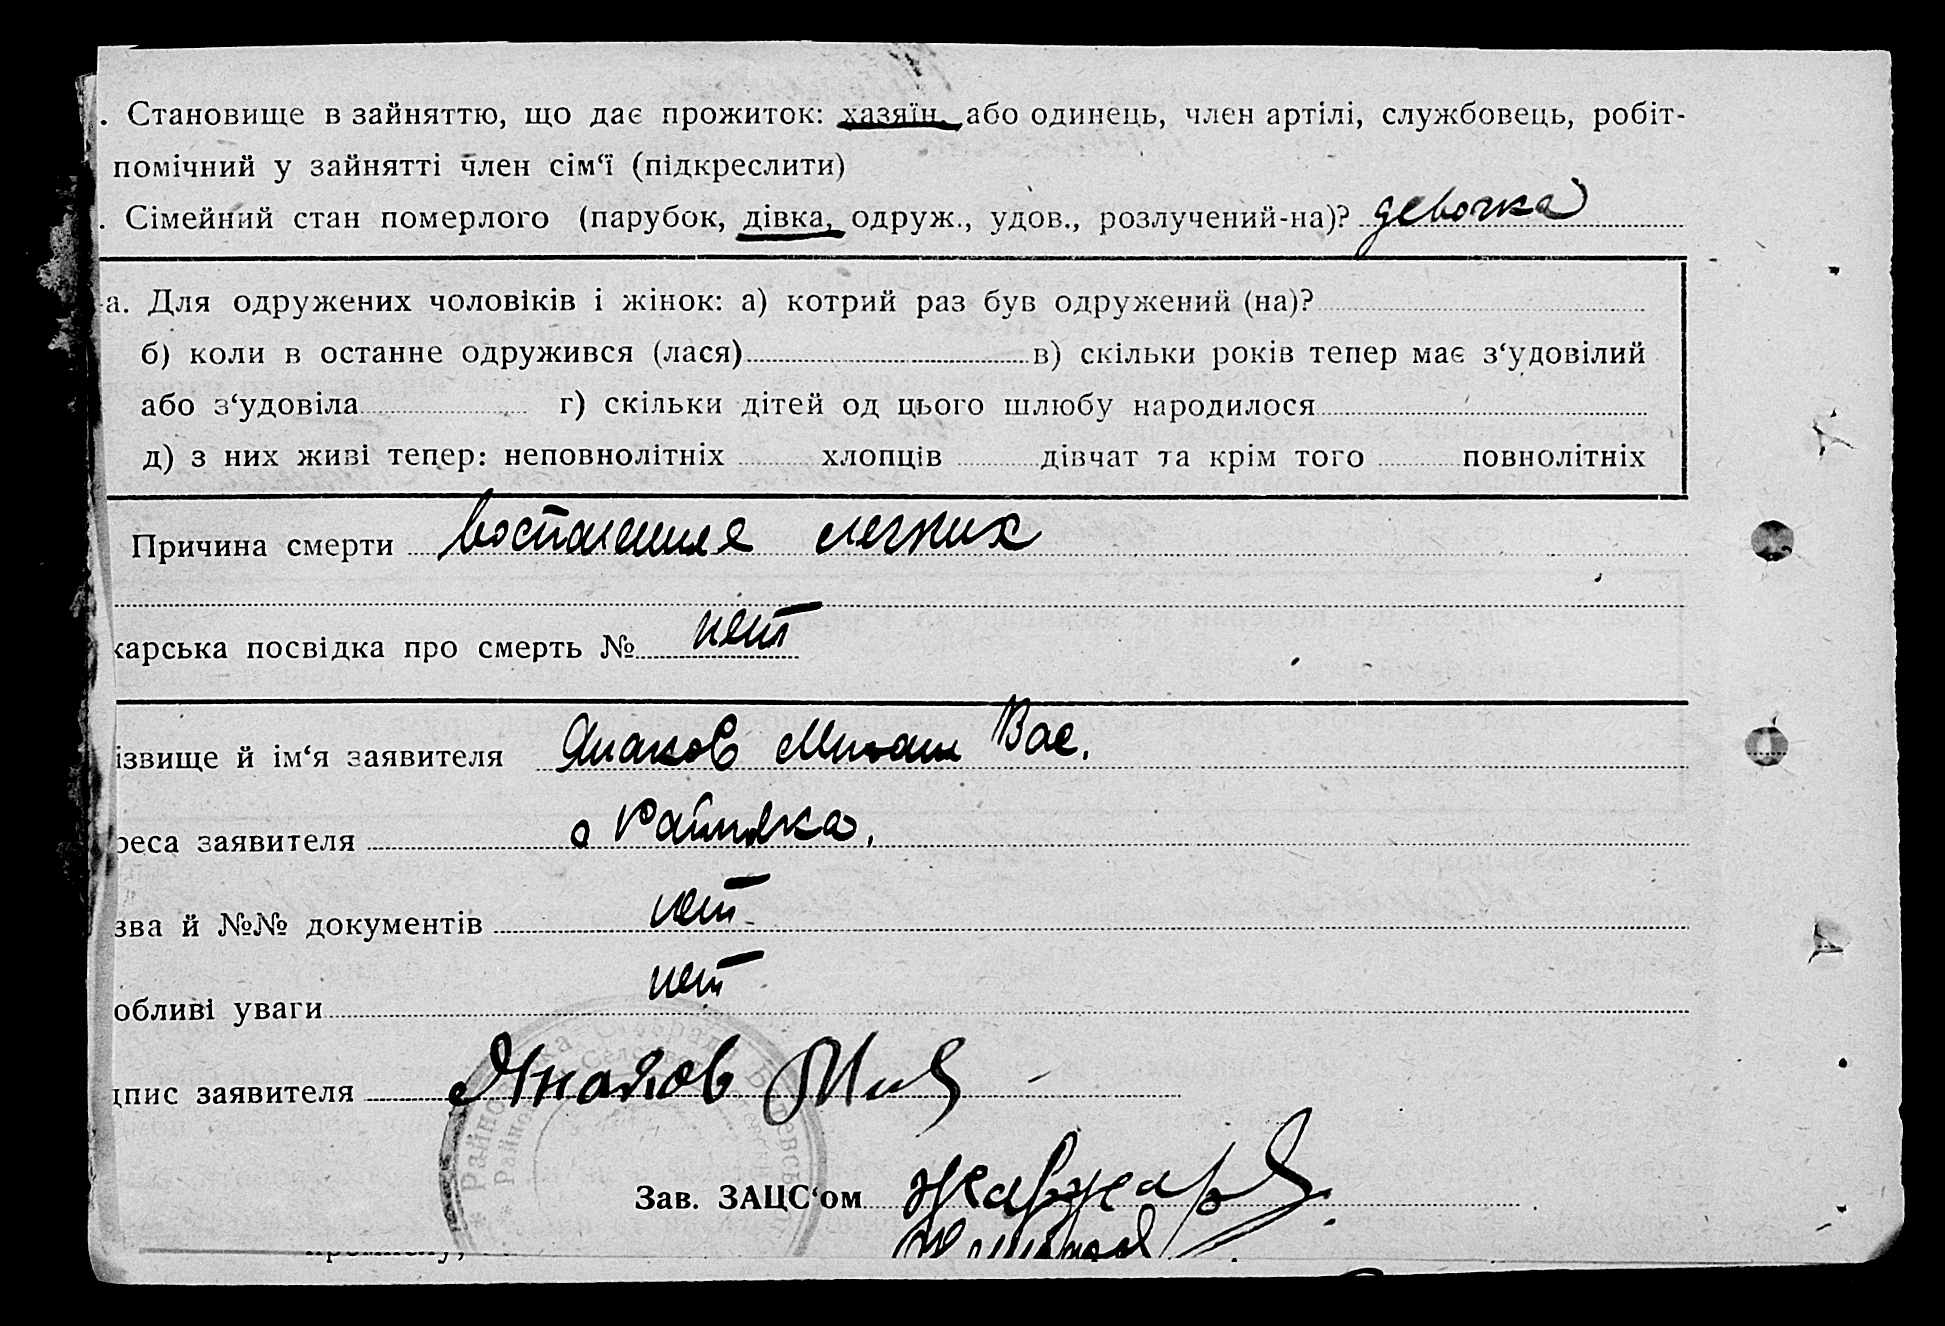 . Становище в зайняттю, що дає прожиток: хазяїн, або одинець, член артілі, службовець, робіт-
помічний у зайнятті член сім‘ї (підкреслити)
. Сімейний стан померлого (парубок, дівка, одруж., удов., розлучений-на)? девочка
а. Для одружених чоловіків і жінок: а) котрий раз був одружений (на)?
б) коли в останне одружився (лася) в) скільки років тепер має з‘удовілий
або з‘удовіла г) скільки дітей од цього шлюбу народилося
д) з них живі тепер: неповнолітніх хлопців дівчат та крім того повнолітніх
Причина смерти воспаления легких
нет
карська посвідка про смерть №
ізвище й ім‘я заявителя Вас.
реса заявителя с Райновка.
зва й №№ документів нет
обливі уваги нет
дпис заявителя
Зав. ЗАЦС‘ом